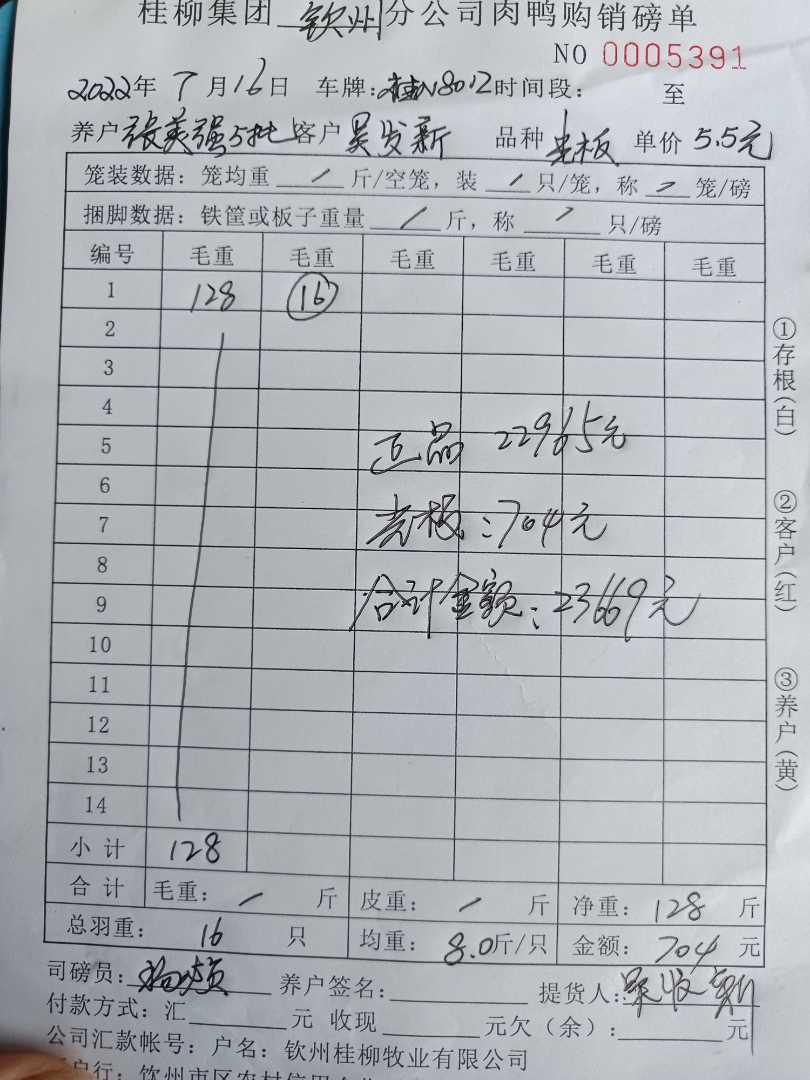 桂柳集团 钦州 分公司肉鸭购销磅单
NO 0005391
2022年 7月16日 车牌:桂N8012 时间段: 至
养户 张美强5批 客户 吴发新 品种 老板 单价 5.5元
笼装数据:笼均重 / 斤/空笼,装 / 只/笼,称 / 笼/磅
捆脚数据:铁筐或板子重量 / 斤,称 / 只/磅
编号 毛重 毛重 毛重 毛重 毛重 毛重
1 128 16
2
3
4
5 正品 22965元
6
7 老板:704元
8
9 合计金额:23669元
10
11
12
13
14
小计 128
合计 毛重: / 斤 皮重: / 斤 净重: 128 斤
总羽重: 16 只 均重: 8.0斤/只 金额: 704 元
司磅员: 养户签名: 提货人:
付款方式:汇 元 收现 元欠(余): 元
公司汇款帐号:户名:钦州桂柳牧业有限公司
户行:钦州市区农村信用
①存根(白)
②客户(红)
③养户(黄)